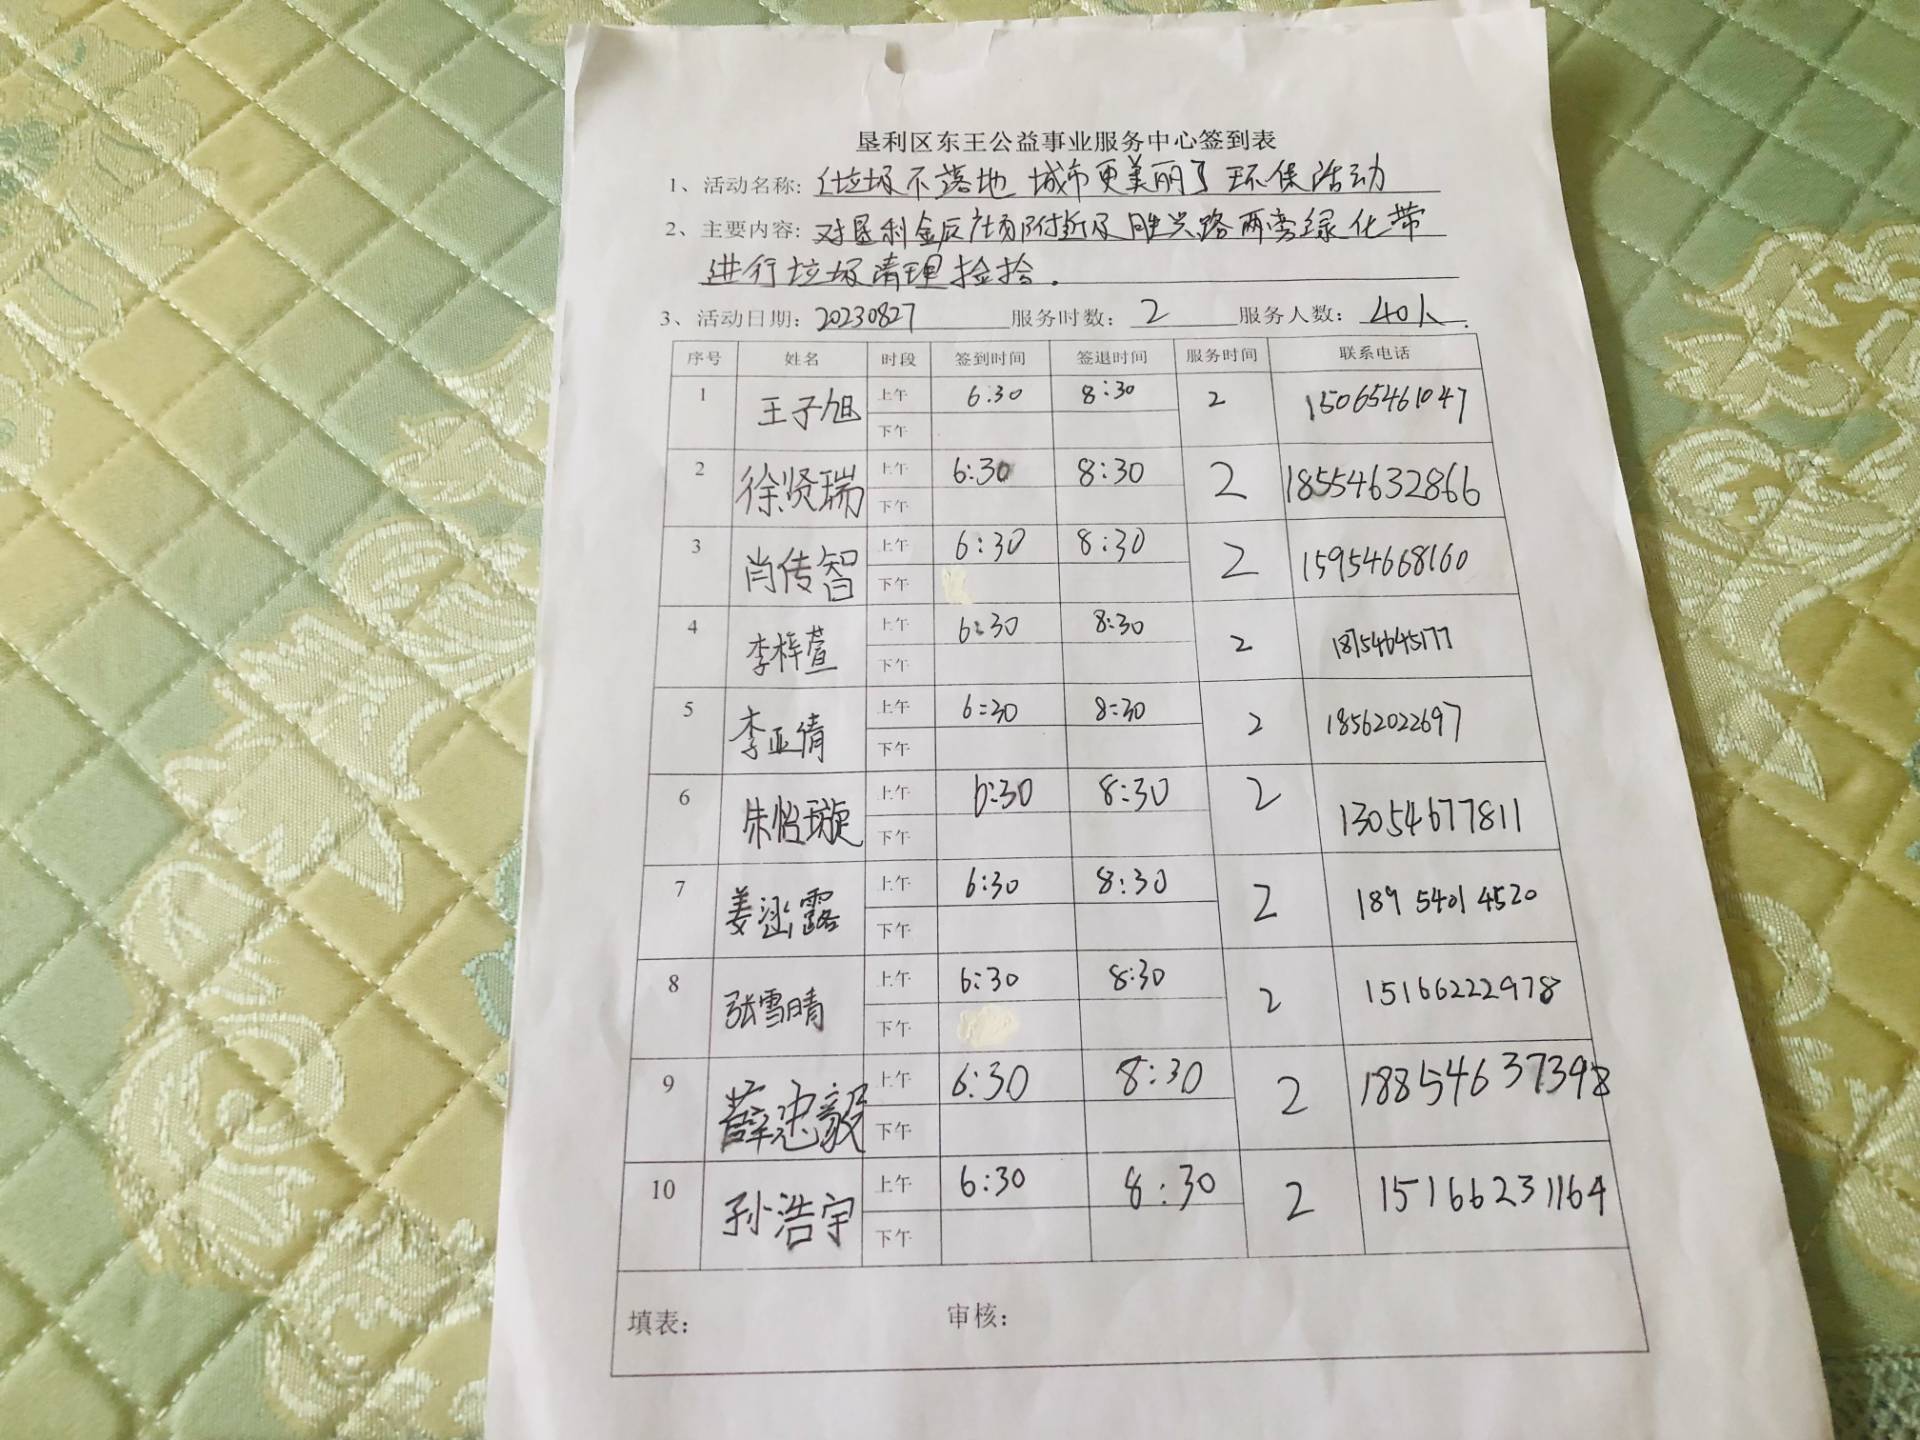 垦利区东王公益事业服务中心签到表
1、活动名称: 《垃圾不落地 城市更美丽》环保活动
2、主要内容: 对垦利金辰广场附近及胜兴路两旁绿化带
进行垃圾清理捡拾.
3、活动日期: 20230827 服务时数: 2 服务人数: 40人.
序号 姓名 时段 签到时间 签退时间 服务时间 联系电话
1 王子旭 上午 6:30 8:30 2 15065461047
下午
2 徐贤瑞 上午 6:30 8:30 2 18554632866
下午
3 肖传智 上午 6:30 8:30 2 15954668160
下午
4 李梓萱 上午 6:30 8:30 2 18754645177
下午
5 李亚倩 上午 6:30 8:30 2 18562022697
下午
6 朱怡璇 上午 6:30 8:30 2 13054677811
下午
7 姜涵露 上午 6:30 8:30 2 189 5401 4520
下午
8 张雪晴 上午 6:30 8:30 2 15166222978
下午
9 薛忠毅 上午 6:30 8:30 2 18854637398
下午
10 孙浩宇 上午 6:30 8:30 2 15166231164
下午
填表: 审核: